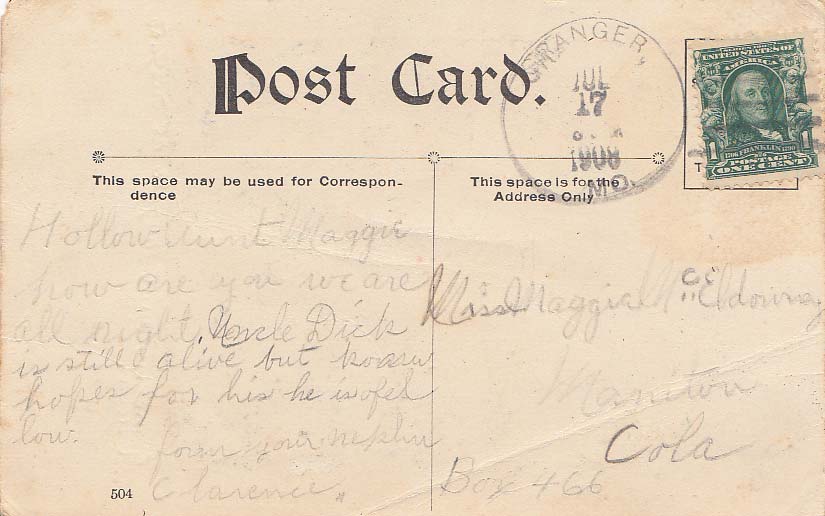 Post Card.
GRANGER,
JUL
17
1908
MO.
UNITED STATES OF
AMERICA
1706 FRANKLIN 1790
1 POSTAGE 1
ONE CENT
This space may be used for Correspon-
dence
This space is for the
Address Only
Hollow Aunt Maggie
how are you we are
all right. Uncle Dick
is still alive but
hopes for his he is
low.
form your
Clarence
Miss Maggie Mc Eldowney
Maniton
Cola
Box 466
504